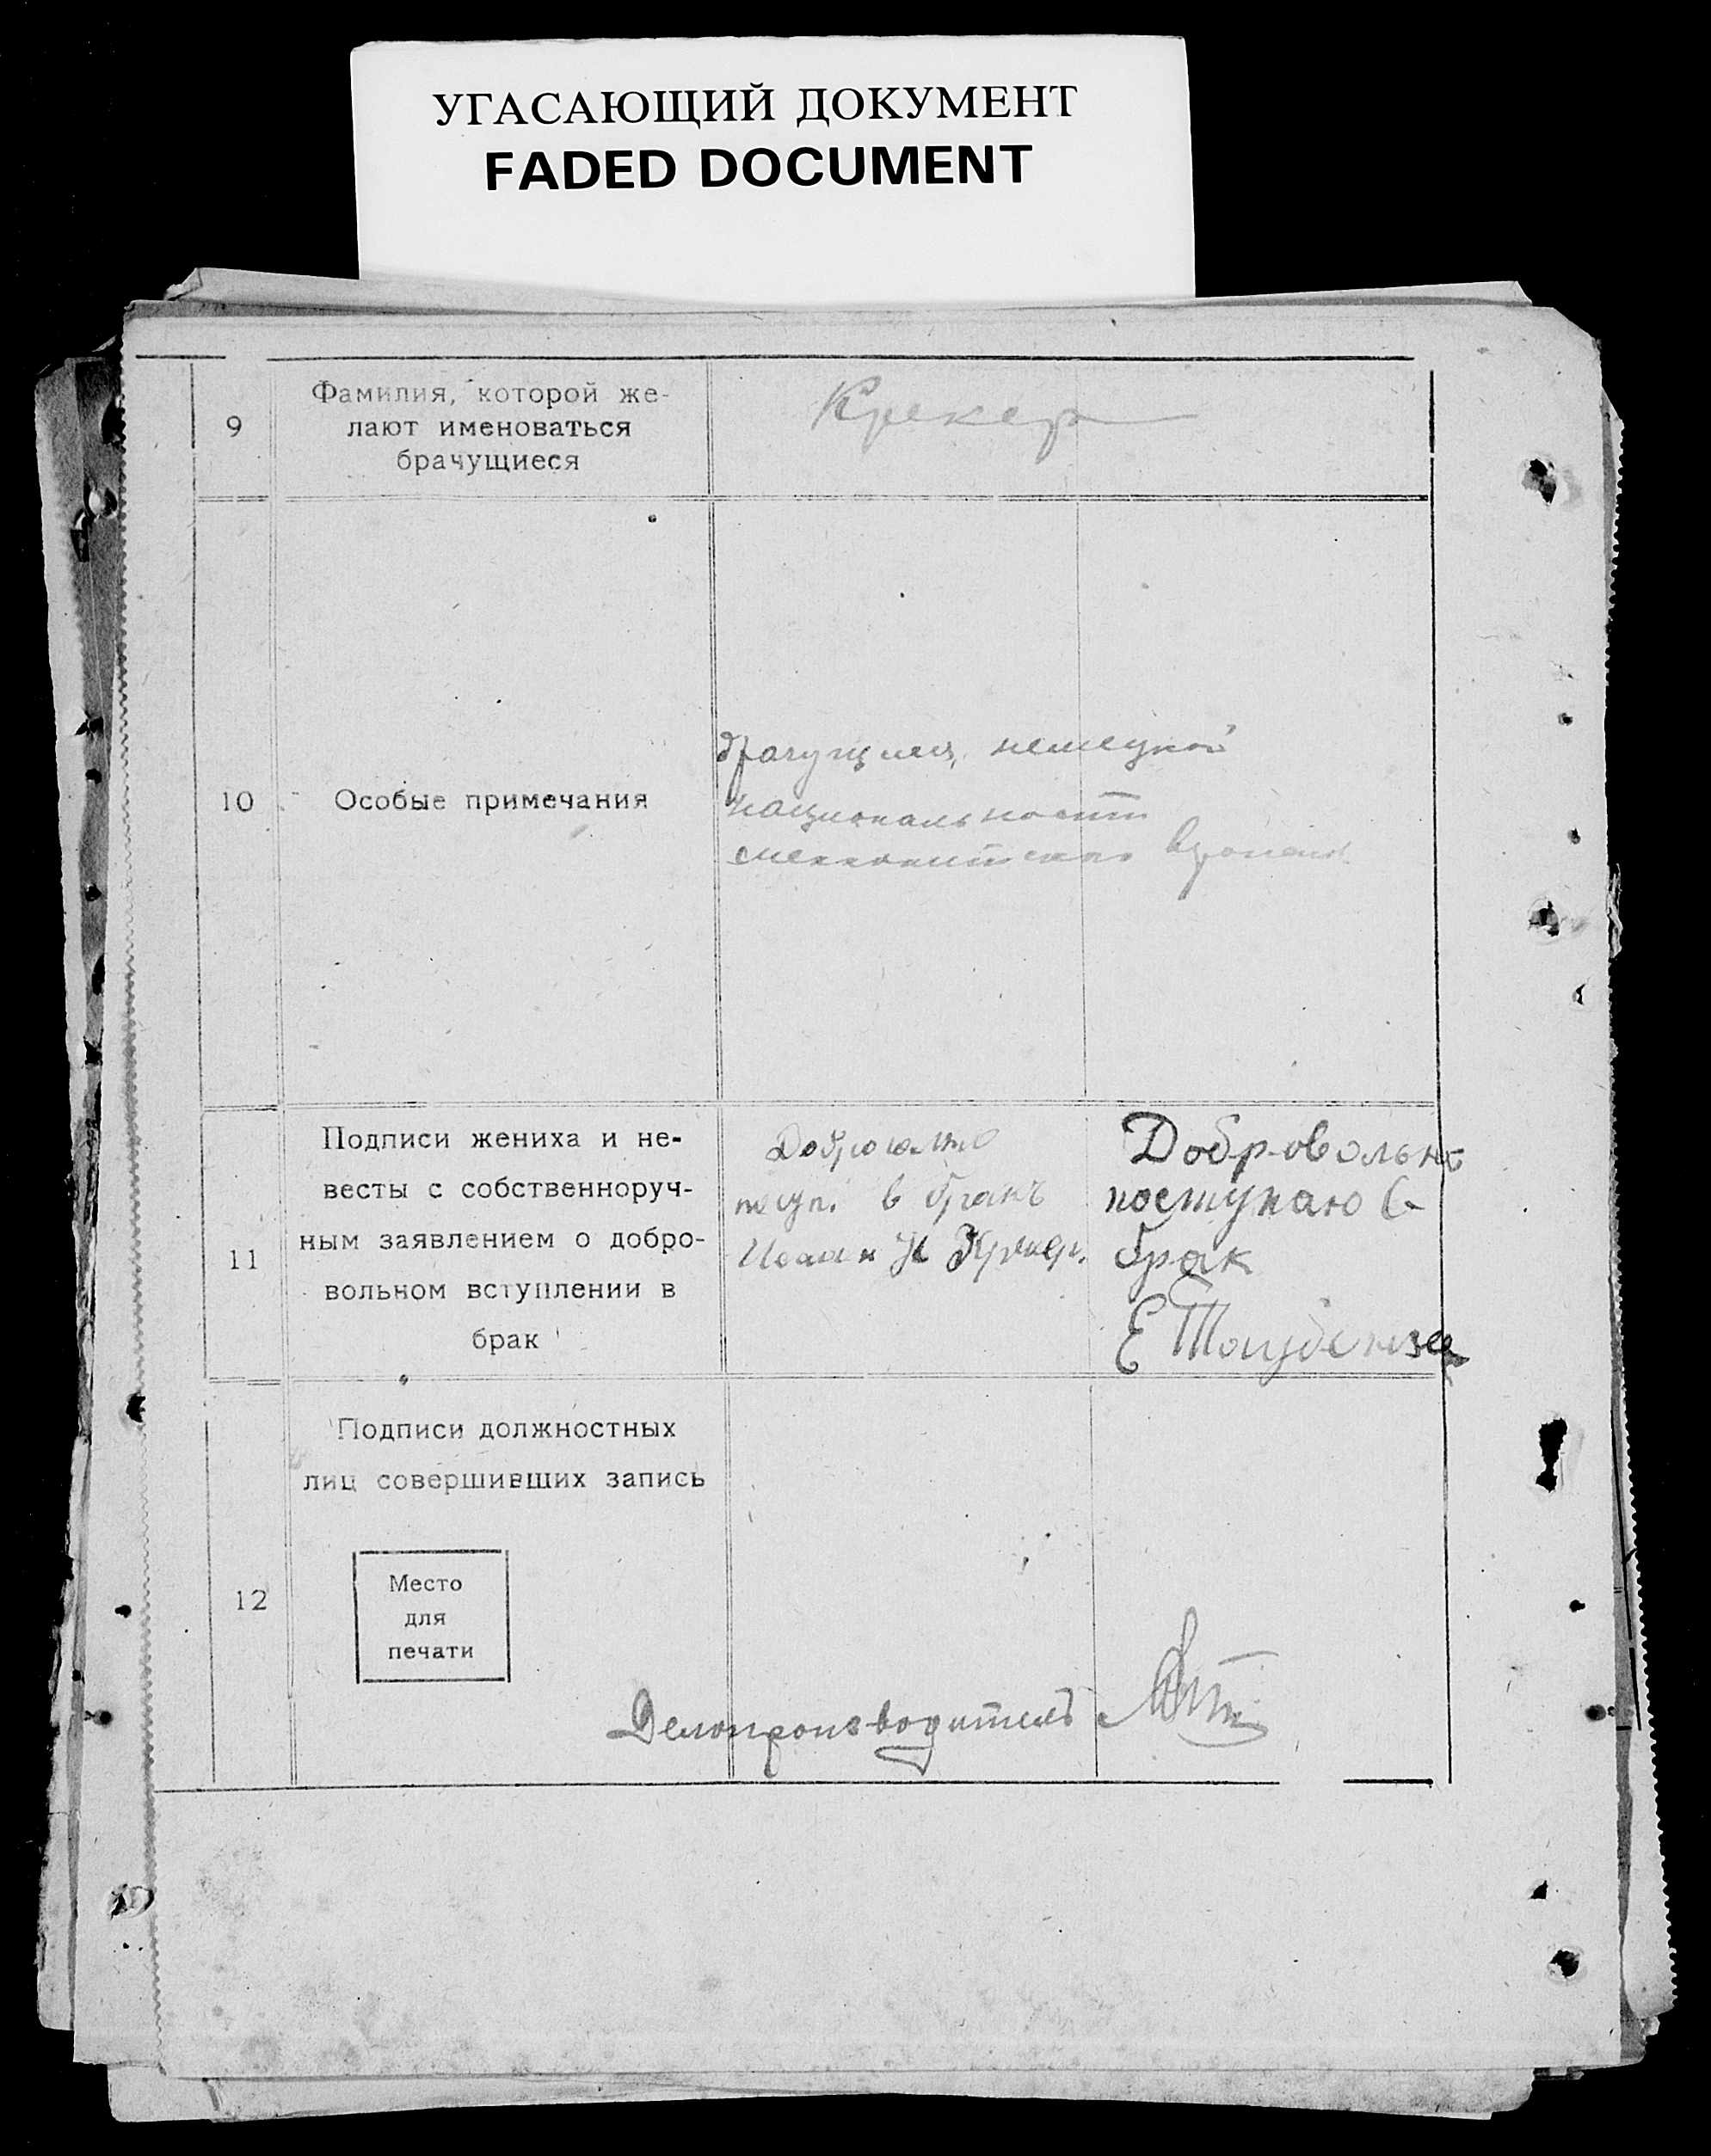 УГАСАЮЩИЙ ДОКУМЕНТ
FADED DOCUMENT
9
Фамилия, которой же-
лают именоваться
брачущиеся
Крекер
10
Особые примечания
брачущиеся, немецкой
национальности
11
Подписи жениха и не-
весты с собственноруч-
ным заявлением о добро-
вольном вступлении в
брак
в бракъ
Крекер.
Добровольно
поступаю в
брак
Е
12
Подписи должностных
лиц совершивших запись
Место
для
печати
Делопроизводитель